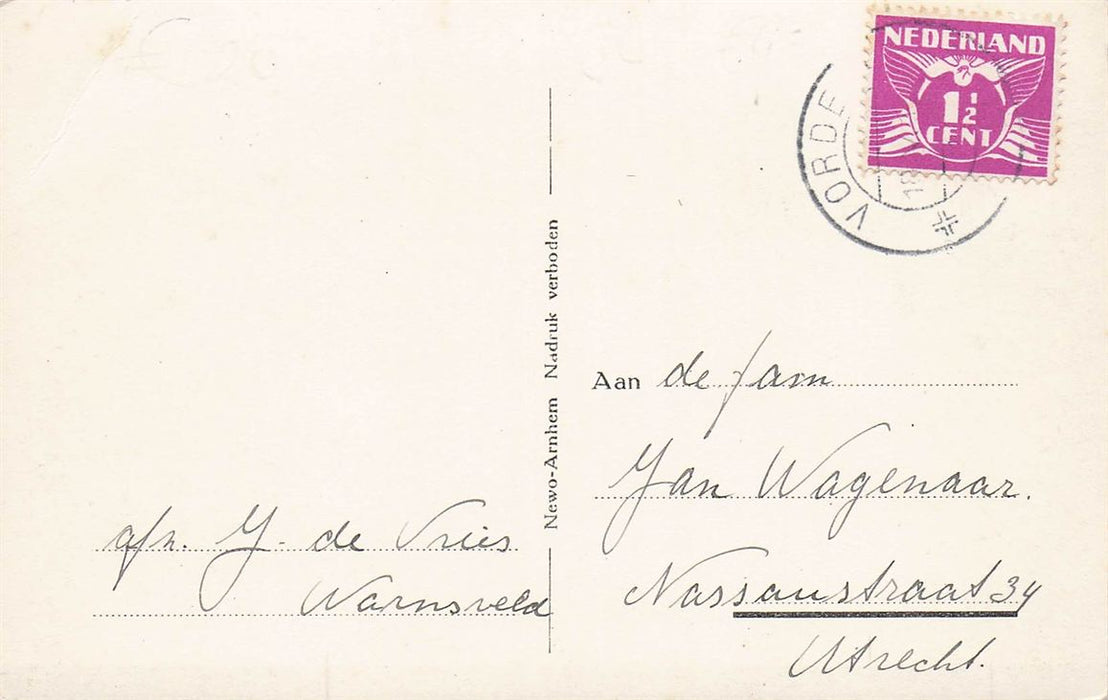 NEDERLAND
1½
CENT
VORDE
Newo-Arnhem Nadruk verboden
Aan de fam
Jan Wagenaar.
Nassaustraat 34
Utrecht.
afz. J. de Vries
Warnsveld